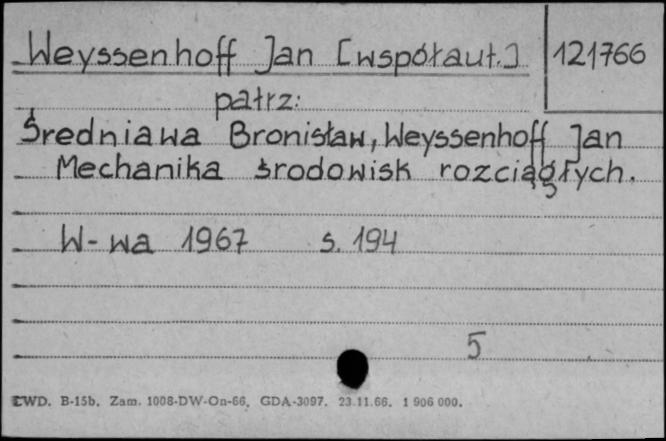 Weyssenhoff Jan [współaut.] 121766
patrz:
Średniawa Bronisław, Weyssenhoff Jan
Mechanika środowisk rozciągłych.
W-wa 1967 s. 194
5
CWD. B-15b. Zam. 1008-DW-On-66. GDA-3097. 23.11.66. 1 906 000.